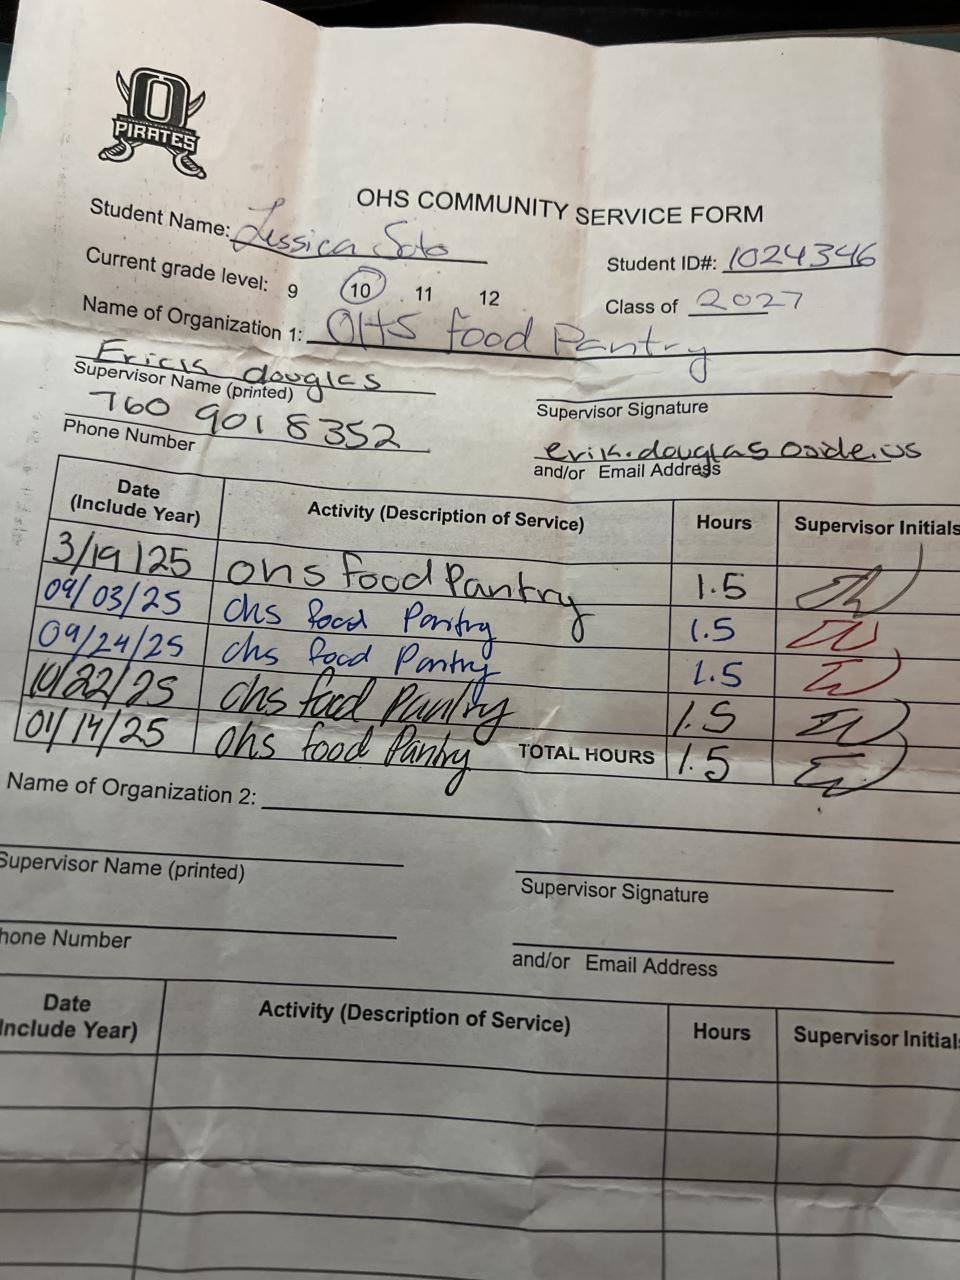 O
PIRATES
OHS COMMUNITY SERVICE FORM
Student Name: Jessica Soto
Student ID#: 1024346
Current grade level: 9 10 11 12
Class of 2027
Name of Organization 1: OHS Food Pantry
Erick douglas
Supervisor Name (printed)
Supervisor Signature
760 901 8352
Phone Number
erik.douglas oside.us
and/or Email Address
Date (Include Year) Activity (Description of Service) Hours Supervisor Initials
3/19/25 ohs food Pantry 1.5
09/03/25 ohs food Pantry 1.5
09/24/25 ohs food Pantry 1.5
10/22/25 ohs food Pantry 1.5
01/14/25 ohs food Pantry TOTAL HOURS 1.5
Name of Organization 2:
Supervisor Name (printed)
Supervisor Signature
hone Number
and/or Email Address
Date Include Year) Activity (Description of Service) Hours Supervisor Initials